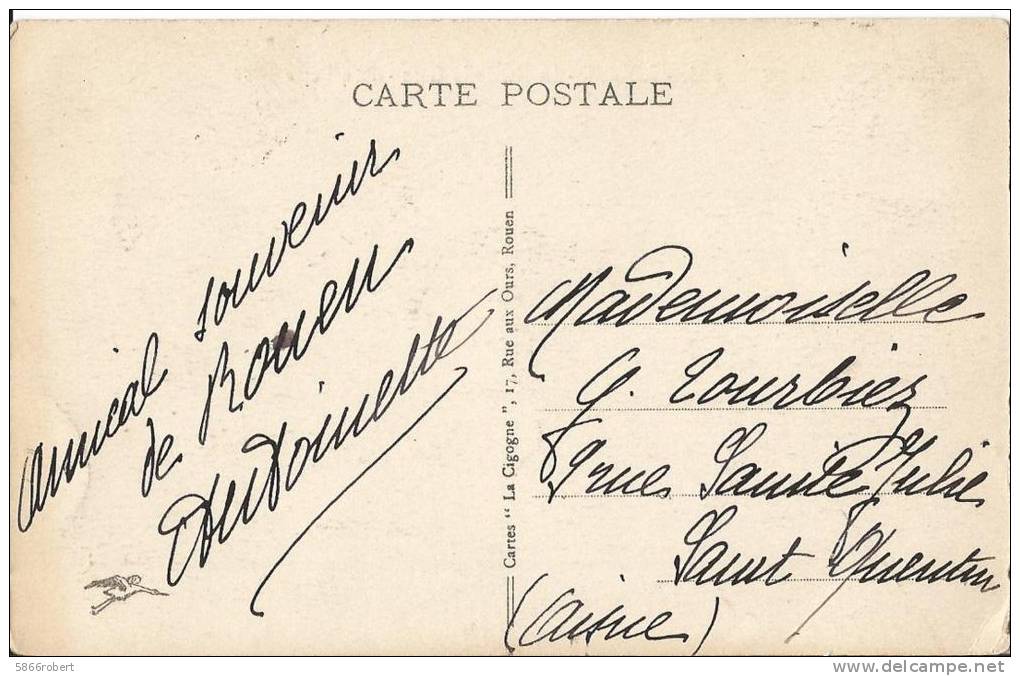 CARTE POSTALE
amical souvenir
de Rouen
Antoinette
Cartes " La Cigogne ", 17, Rue aux Ours, Rouen
Mademoiselle
G. Tourbiez
9 rue Sainte Julie
Saint Quentin
(Aisne)
5866robert
www.delcampe.net